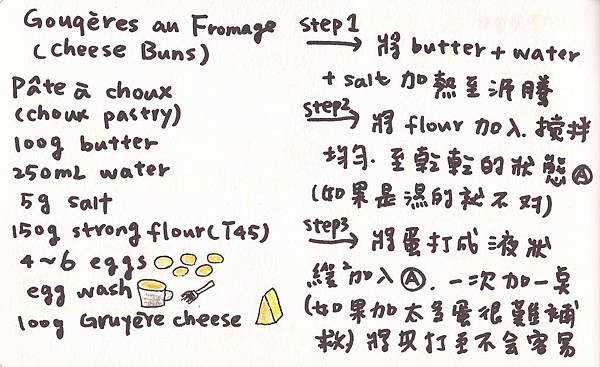 Gougères au Fromage
(cheese Buns)
Pâte à choux
(choux pastry)
100g butter
250mL water
5g salt
150g strong flour (T45)
4~6 eggs
egg wash
100g Gruyère cheese
step1
將 butter + water
+ salt 加熱至沸騰
step2
將 flour 加入. 攪拌
均匀. 至乾乾的狀態Ⓐ
(如果是濕的就不对)
step3
將蛋打成液狀
緩²加入Ⓐ. 一次加一点
(如果加太多蛋很難補
救) 將 打至不会容易